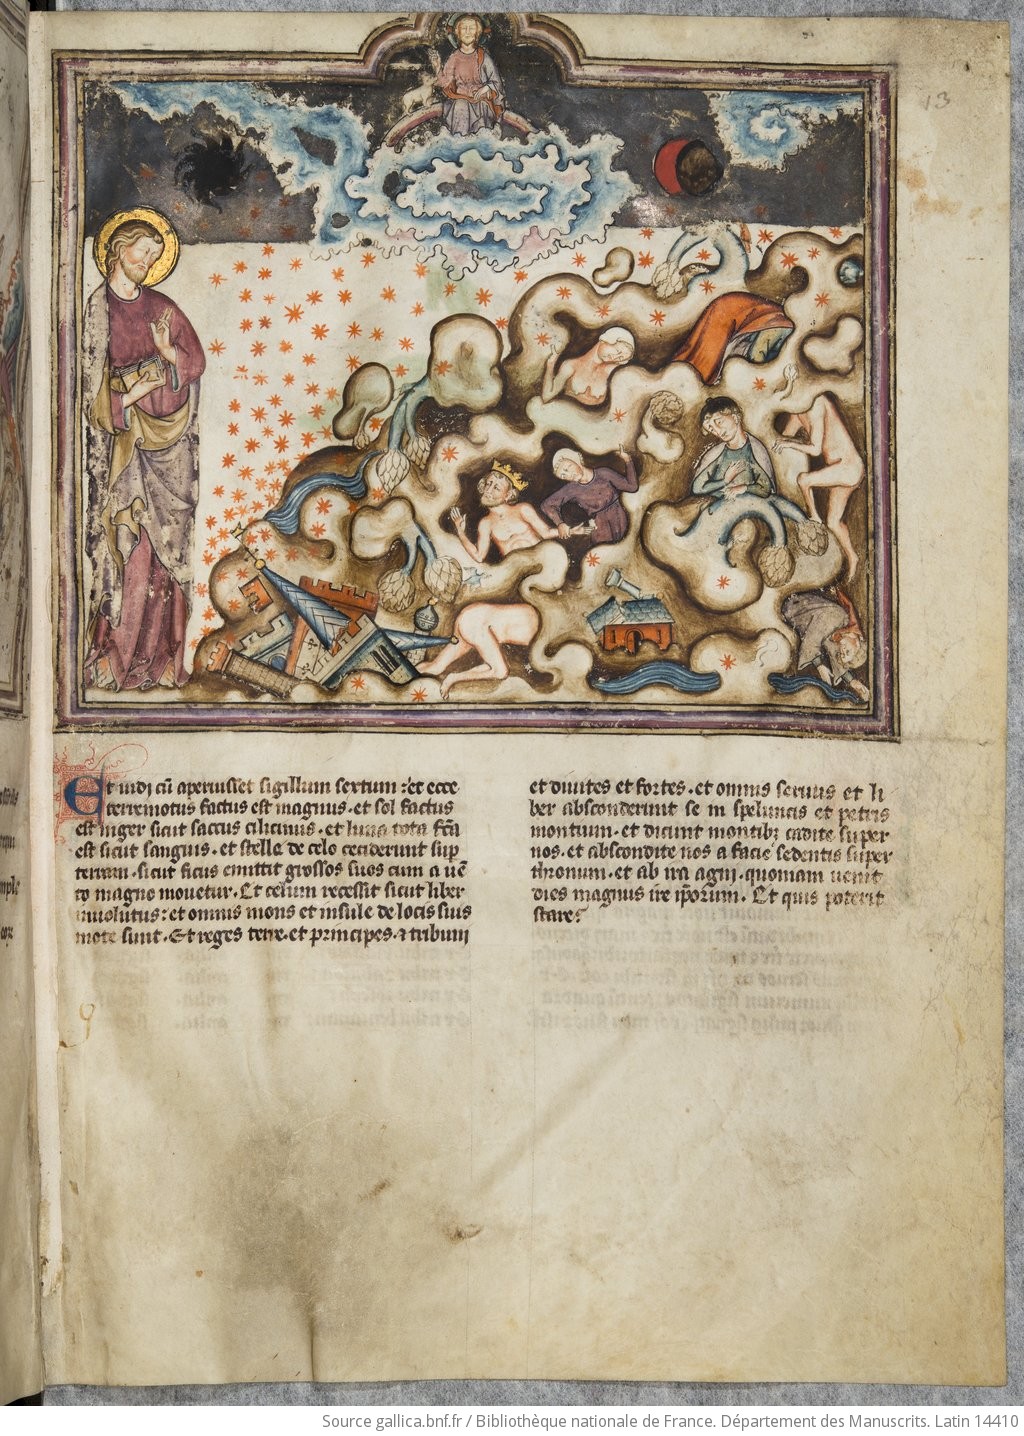 13
Et uidj cū aperuisset sigillum sextum : et ecce
terremotus factus est magnus . et sol factus
est niger sicut saccus cilicinus . et luna tota fc̄a
est sicut sanguis . et stelle de celo ceciderunt sup
terram . sicut ficus emittit grossos suos cum a uē
to magno mouetur . Et celum recessit sicut liber
inuolutus : et omnis mons et insule de locis suis
mote sunt . Et reges terre . et principes . ⁊ tribuni
et diuites et fortes . et omnis seruus et li
ber absconderunt se in speluncis et petris
montium . et dicunt montibꝫ cadite super
nos . et abscondite nos a facie sedentis super
thronum . et ab ira agni . quoniam uenit
dies magnus ire ip̄orum . Et quis poterit
stare
Source gallica.bnf.fr / Bibliothèque nationale de France. Département des Manuscrits. Latin 14410